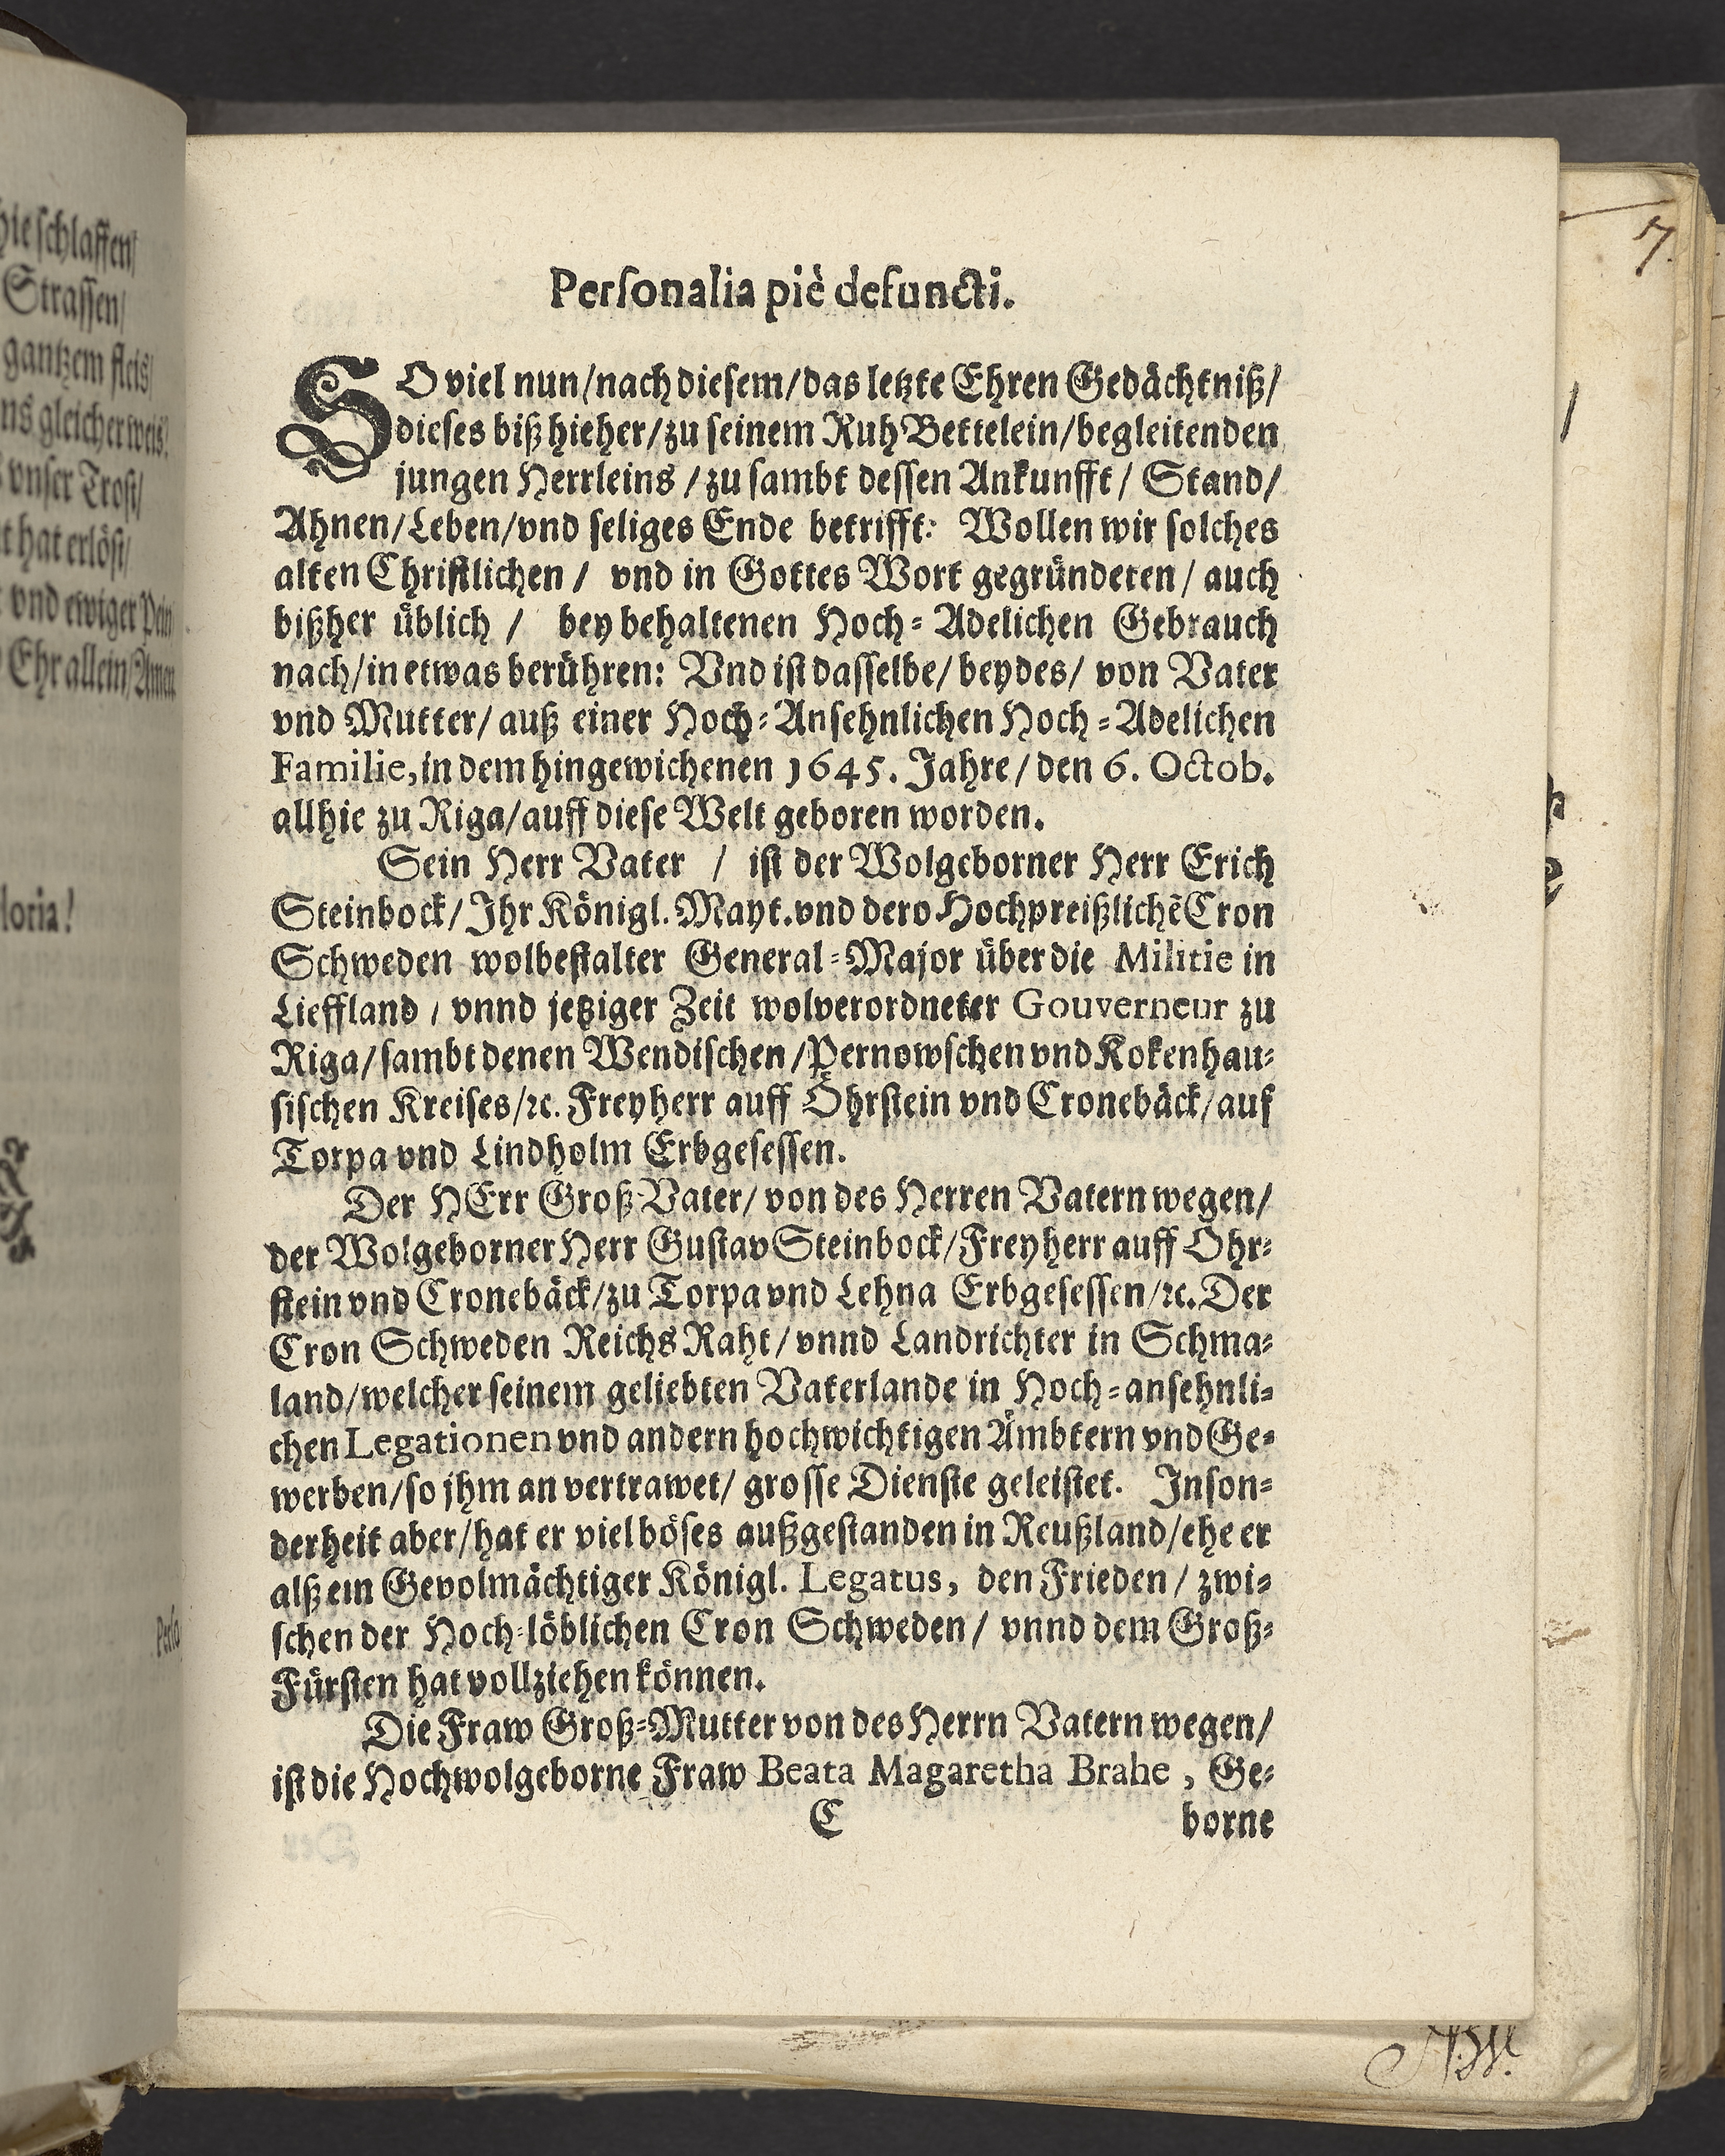 hie schlaffen/
Strassen/
gantzem fleis/
ns gleicher weis/
vnser Trost/
t hat erlöst/
vnd ewiger Pein
Ehr allein/Amen
loria!
Perso
7.
Personalia piè defuncti.
SO viel nun/nach diesem/das letzte Ehren Gedächtniß/
dieses biß hieher/zu seinem Ruh Bettelein/begleitenden
jungen Herrleins/zu sambt dessen Ankunfft/ Stand/
Ahnen/Leben/vnd seliges Ende betrifft: Wollen wir solches
alten Christlichen/ vnd in Gottes Wort gegründeten/ auch
bißher üblich/ bey behaltenen Hoch-Adelichen Gebrauch
nach/in etwas berühren: Vnd ist dasselbe/ beydes/ von Vater
vnd Mutter/ auß einer Hoch-Ansehnlichen Hoch-Adelichen
Familie, in dem hingewichenen 1645. Jahre/ den 6. Octob.
allhie zu Riga/auff diese Welt geboren worden.
Sein Herr Vater / ist der Wolgeborner Herr Erich
Steinbock/Ihr Königl. Mayt. vnd dero Hochpreißlichẽ Cron
Schweden wolbestalter General-Major über die Militie in
Lieffland/ vnnd jetziger Zeit wolverordneter Gouverneur zu
Riga/sambt denen Wendischen/Pernowschen vnd Kokenhau-
sischen Kreises/ꝛc. Freyherr auff Öhrstein vnd Cronebäck/auf
Torpa vnd Lindholm Erbgesessen.
Der HErr Groß-Vater/ von des Herren Vatern wegen/
der Wolgeborner Herr Gustav Steinbock/Freyherr auff Öhr-
stein vnd Cronebäck/zu Torpa vnd Lehna Erbgesessen/ꝛc. Der
Cron Schweden Reichs Raht/ vnnd Landrichter in Schma-
land/welcher seinem geliebten Vaterlande in Hoch-ansehnli-
chen Legationen vnd andern hochwichtigen Ämbtern vnd Ge-
werben/so jhm an vertrawet/ grosse Dienste geleistet. Inson-
derheit aber/hat er viel böses außgestanden in Reußland/ehe er
alß ein Gevolmächtiger Königl. Legatus, den Frieden/ zwi-
schen der Hoch-löblichen Cron Schweden/ vnnd dem Groß-
Fürsten hat vollziehen können.
Die Fraw Groß-Mutter von des Herrn Vatern wegen/
ist die Hochwolgeborne Fraw Beata Magaretha Brahe, Ge-
C borne